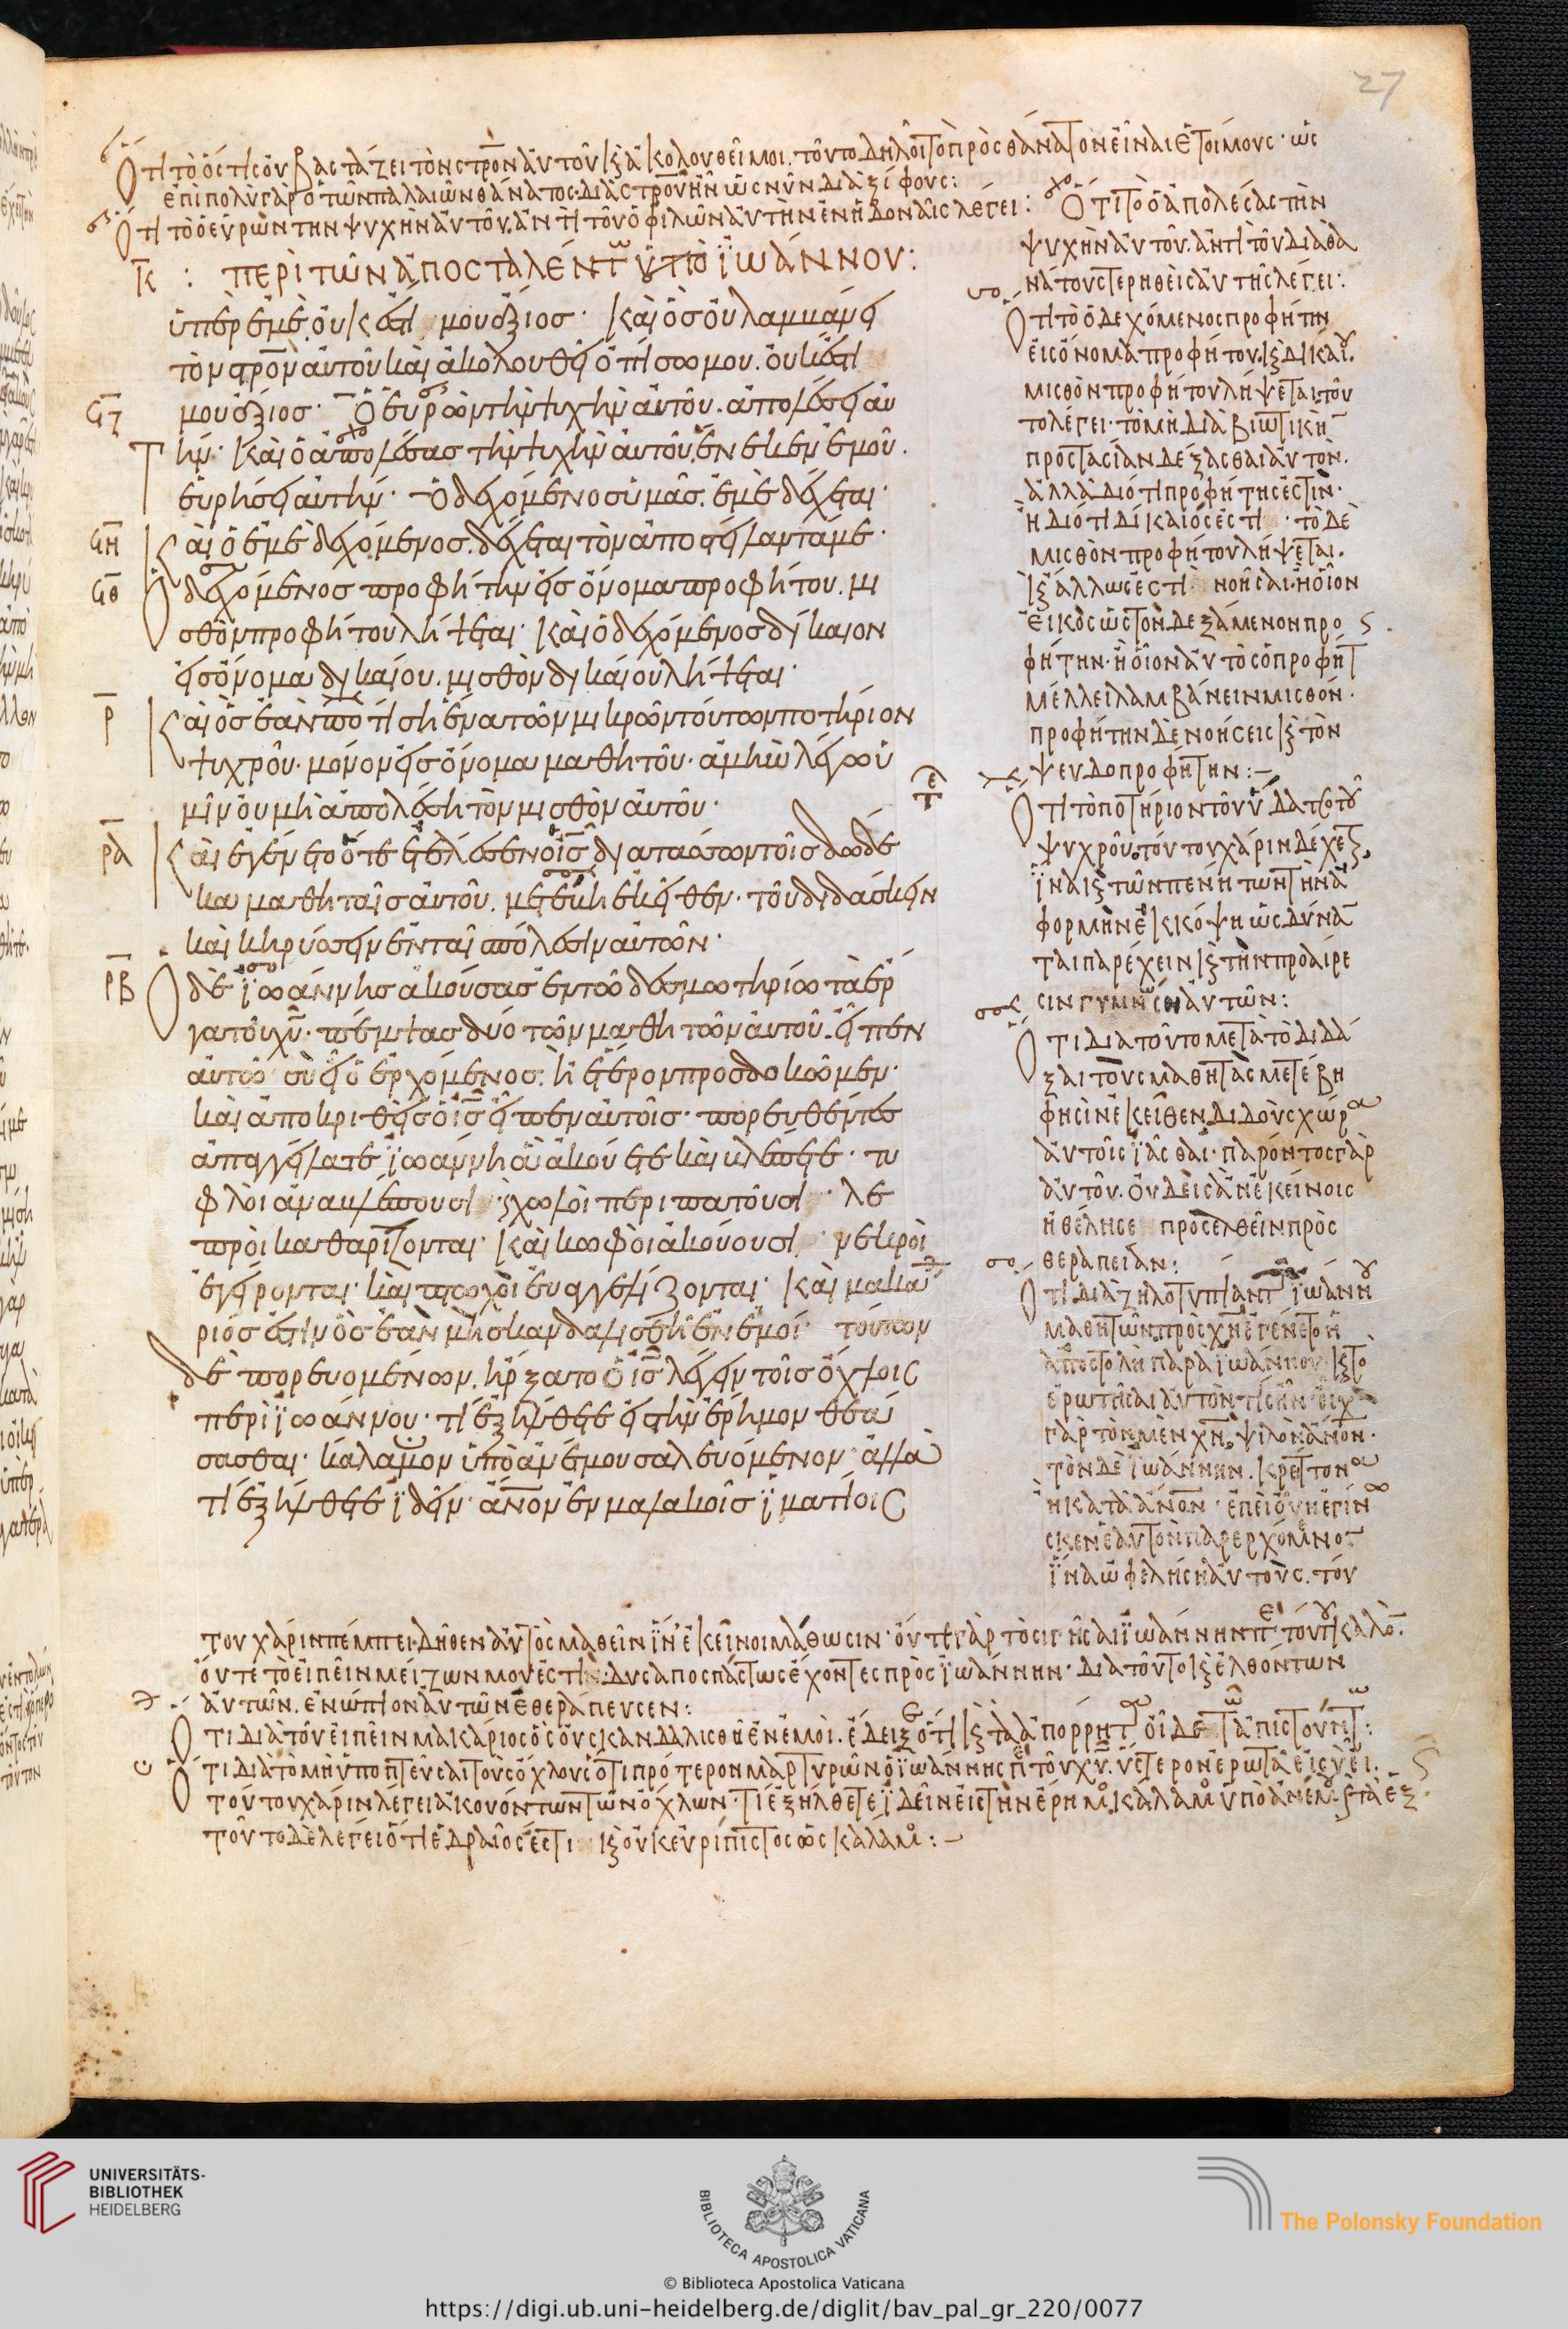 27
Ὅτι τὸ ὅστις οὐ βαστάζει τὸν σταυρὸν αὐτοῦ καὶ ἀκολουθεῖ μοι. τοῦτο δηλοῖ τὸ πρὸς θάνατον εἶναι ἑτοίμους· ὡς
ἐπὶ πολὺ γὰρ ὁ τῶν παλαιῶν θάνατος. διὰ σταυροῦ ἦν ὡς νῦν διὰ ξίφους:
Ὅτι τὸ ὁ εὑρὼν τὴν ψυχὴν αὐτοῦ. ἀντὶ τοῦ ὁ φιλῶν αὐτὴν ἐν ἡδοναῖς λέγει:
Κ : περὶ τῶν ἀποσταλέντων ὑπὸ ϊωάννου:
ὑπὲρ ἐμὲ. οὐκ ἔστι μου ἄξιος· καὶ ὃς οὐ λαμβάνει
τὸν στρον αὐτοῦ καὶ ἀκολουθεῖ ὀπίσω μου. οὐκ ἔστι
ϟζ μου ἄξιος· Ὁ εὑρὼν τὴν ψυχὴν αὐτοῦ. ἀπολέσει αὐ
τήν· καὶ ὁ ἀπολέσας τὴν ψυχὴν αὐτοῦ ἕνεκεν ἐμοῦ.
εὑρήσει αὐτήν· ὁ δεχόμενος ὑμᾶς. ἐμὲ δέχεται·
ϟη καὶ ὁ ἐμὲ δεχόμενος. δέχεται τὸν ἀποστείλαντά με·
ϟθ Ὁ δεχόμενος προφήτην εἰς ὄνομα προφήτου. μι
σθὸν προφήτου λήψεται· καὶ ὁ δεχόμενος δίκαιον
εἰς ὄνομα δικαίου. μισθὸν δικαίου λήψεται·
ρ καὶ ὃς ἐὰν ποτίσῃ ἕνα τῶν μικρῶν τούτων ποτήριον
ψυχροῦ. μόνον εἰς ὄνομα μαθητοῦ· ἀμὴν λέγω ὑ
μῖν οὐ μὴ ἀπολέσῃ τὸν μισθὸν αὐτοῦ·
ρα καὶ ἐγένετο ὅτε ἐτέλεσεν ὁ ις διατάσσων τοῖς δώδε
κα μαθηταῖς αὐτοῦ. μετέβη ἐκεῖθεν· τοῦ διδάσκειν
καὶ κηρύσσειν ἐν ταῖς πόλεσιν αὐτῶν·
ρβ Ὁ δὲ ϊωάννης ἀκούσας ἐν τῶ δεσμωτηρίω τὰ ἔρ
γα τοῦ χυ· πέμψας δύο τῶν μαθητῶν αὐτοῦ. εἶπεν
αὐτῶ σὺ εἶ ὁ ἐρχόμενος; ἢ ἕτερον προσδοκῶμεν·
καὶ ἀποκριθεὶς ὁ ις εἶπεν αὐτοῖς· πορευθέντες
ἀπαγγείλατε ϊωάννη ἃ ἀκούετε καὶ βλέπετε· τυ
φλοὶ ἀναβλέπουσι· χωλοὶ περιπατοῦσι· λε
προὶ καθαρίζονται· καὶ κωφοὶ ἀκούουσι· νεκροὶ
ἐγείρονται· καὶ πτωχοὶ εὐαγγελίζονται· καὶ μακά
ριός ἐστιν ὃς ἐὰν μὴ σκανδαλισθῆ ἐν ἐμοί· τούτων
δὲ πορευομένων. ἤρξατο ὁ ις λέγειν τοῖς ὄχλοις
περὶ ϊωάννου· τί ἐξήλθετε εἰς τὴν ἔρημον θεά
σασθαι· κάλαμον ὑπὸ ἀνέμου σαλευόμενον· ἀλλὰ
τί ἐξήλθετε ϊδεῖν· ανον ἐν μαλακοῖς ϊματίοις
Ὅτι τὸ ὁ ἀπολέσας τὴν
ψυχὴν αὐτοῦ. ἀντὶ τοῦ διὰ θα
νάτου στερηθεὶς αὐτῆς λέγει:
Ὅτι τὸ ὁ δεχόμενος προφήτην
εἰς ὄνομα προφήτου. καὶ δικαίου.
μισθὸν προφήτου λήψεται. τοῦ
το λέγει· τὸ μὴ διὰ βιωτικὴν
προστασίαν δέξασθαι αὐτὸν.
ἀλλὰ διότι προφήτης ἐστὶν·
ἢ διότι δίκαιός ἐστι· τὸ δὲ
μισθὸν προφήτου λήψεται.
καὶ ἄλλως ἐστὶ νοῆσαι· ἢ οἷον
εἰκὸς ὡς τὸν δεξάμενον προ
φήτην· ἢ οἷον αὐτὸς ὁ προφήτ
μέλλει λαμβάνειν μισθόν·
προφήτην δὲ νοήσεις καὶ τὸν
ψευδοπροφήτην:
Ὅτι τὸ ποτήριον τοῦ ὕδατος τοῦ
ψυχροῦ. τούτου χάριν δέχεται,
ἵνα καὶ τῶν πενήτων τὴν ἀ
φορμὴν ἐκκόψη ὡς δύνα
ται παρέχειν καὶ τὴν προαίρε
σιν γυμνώσῃ αὐτῶν:
Ὅτι διὰ τοῦτο μετὰ τὸ διδά
ξαι τοὺς μαθητὰς μετέβη
φησὶν ἐκεῖθεν διδοὺς χώραν
αὐτοῖς ἰᾶσθαι· παρόντος γὰρ
αὐτοῦ. οὐδεὶς ἂν ἐκείνοις
ἠθέλησε προσελθεῖν πρὸς
θεραπείαν:
Ὅτι διὰ ζηλοτυπίαν τῶν ϊωάννου
μαθητῶν πρὸς χν ἐγένετο ἡ
ἀποστολὴ παρὰ ϊωάννου. καὶ τὸ
ἐρωτῆσαι αὐτὸν τίς ἦν· εἶχον
γὰρ τὸν μὲν χν. ψιλὸν ανον·
τὸν δὲ ϊωάννην. κρείττονα
ἢ κατὰ ανον· ἐπεὶ οὖν ἐγίνω
σκεν ἑαυτὸν παρερχόμενον
ἵνα ὠφελήσῃ αὐτοὺς. τού
του χάριν πέμπει. δῆθεν αὐτὸς μαθεῖν ἵν' ἐκεῖνοι μάθωσιν· οὔτε γὰρ τὸ σιγῆσαι ϊωάννην ἐπὶ τούτου καλόν.
οὔτε τὸ εἰπεῖν μείζων μου ἐστὶν. δυσαποσπάστως ἔχοντες πρὸς ϊωάννην· διὰ τοῦτο καὶ ἐλθόντων
αὐτῶν. ἐνώπιον αὐτῶν ἐθεράπευσεν:
Ὅτι διὰ τοῦ εἰπεῖν μακάριος ὃς οὐ σκανδαλισθῆ ἐν ἐμοὶ. ἔδειξεν ὅτι καὶ τὰ ἀπόρρητα οἶδε τῶν ἀπιστούντων:
Ὅτι διὰ τὸ μὴ ὑποπτεῦσαι τοὺς ὄχλους ὅτι πρότερον μαρτυρῶν ὁ ϊωάννης ἐπὶ τοῦ χυ. ὕστερον ἐρωτᾶ
τούτου χάριν λέγει ἀκουόντων τῶν ὄχλων· τί ἐξήλθετε ϊδεῖν εἰς τὴν ἔρημον. κάλαμον ὑπὸ ἀνέμου
τοῦτο δὲ λέγει ὅτι ἑδραῖός ἐστι καὶ οὐκ εὐρίπιστος ὡς κάλαμος:
UNIVERSITÄTS-
BIBLIOTHEK
HEIDELBERG
BIBLIOTECA APOSTOLICA VATICANA
The Polonsky Foundation
© Biblioteca Apostolica Vaticana
https://digi.ub.uni-heidelberg.de/diglit/bav_pal_gr_220/0077